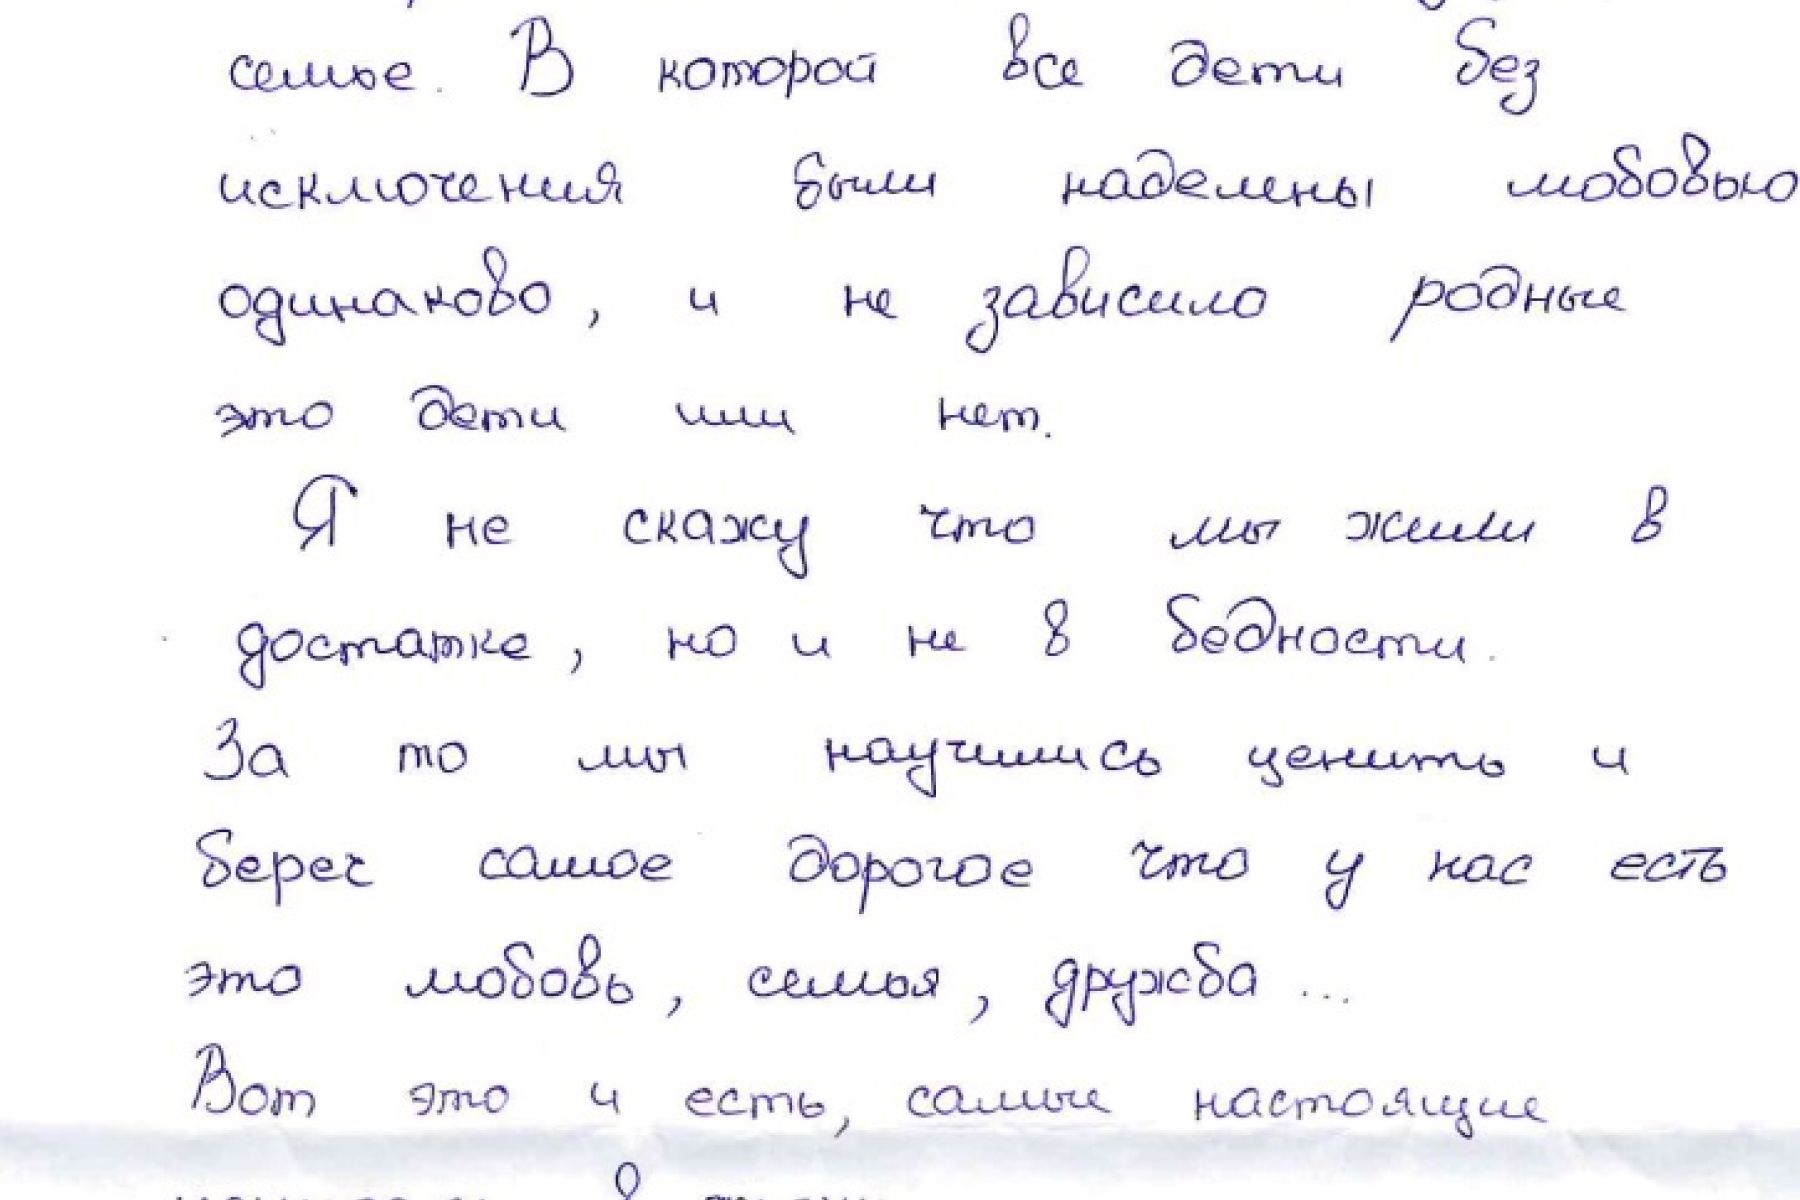 семье. В которой все дети без
исключения были наделены любовью
одинаково, и не зависило родные
это дети или нет.
Я не скажу что мы жили в
достатке, но и не в бедности.
За то мы научились ценить и
береч самое дорогое что у нас есть
это любовь, семья, дружба...
Вот это и есть, самые настоящие